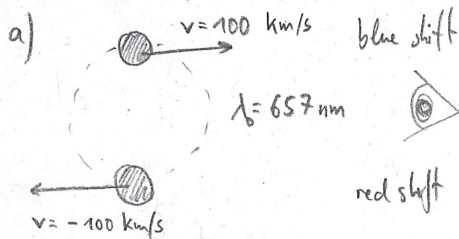 a)
v=100 km/s
blue shift
λ₀=657nm
red shift
v=-100 km/s